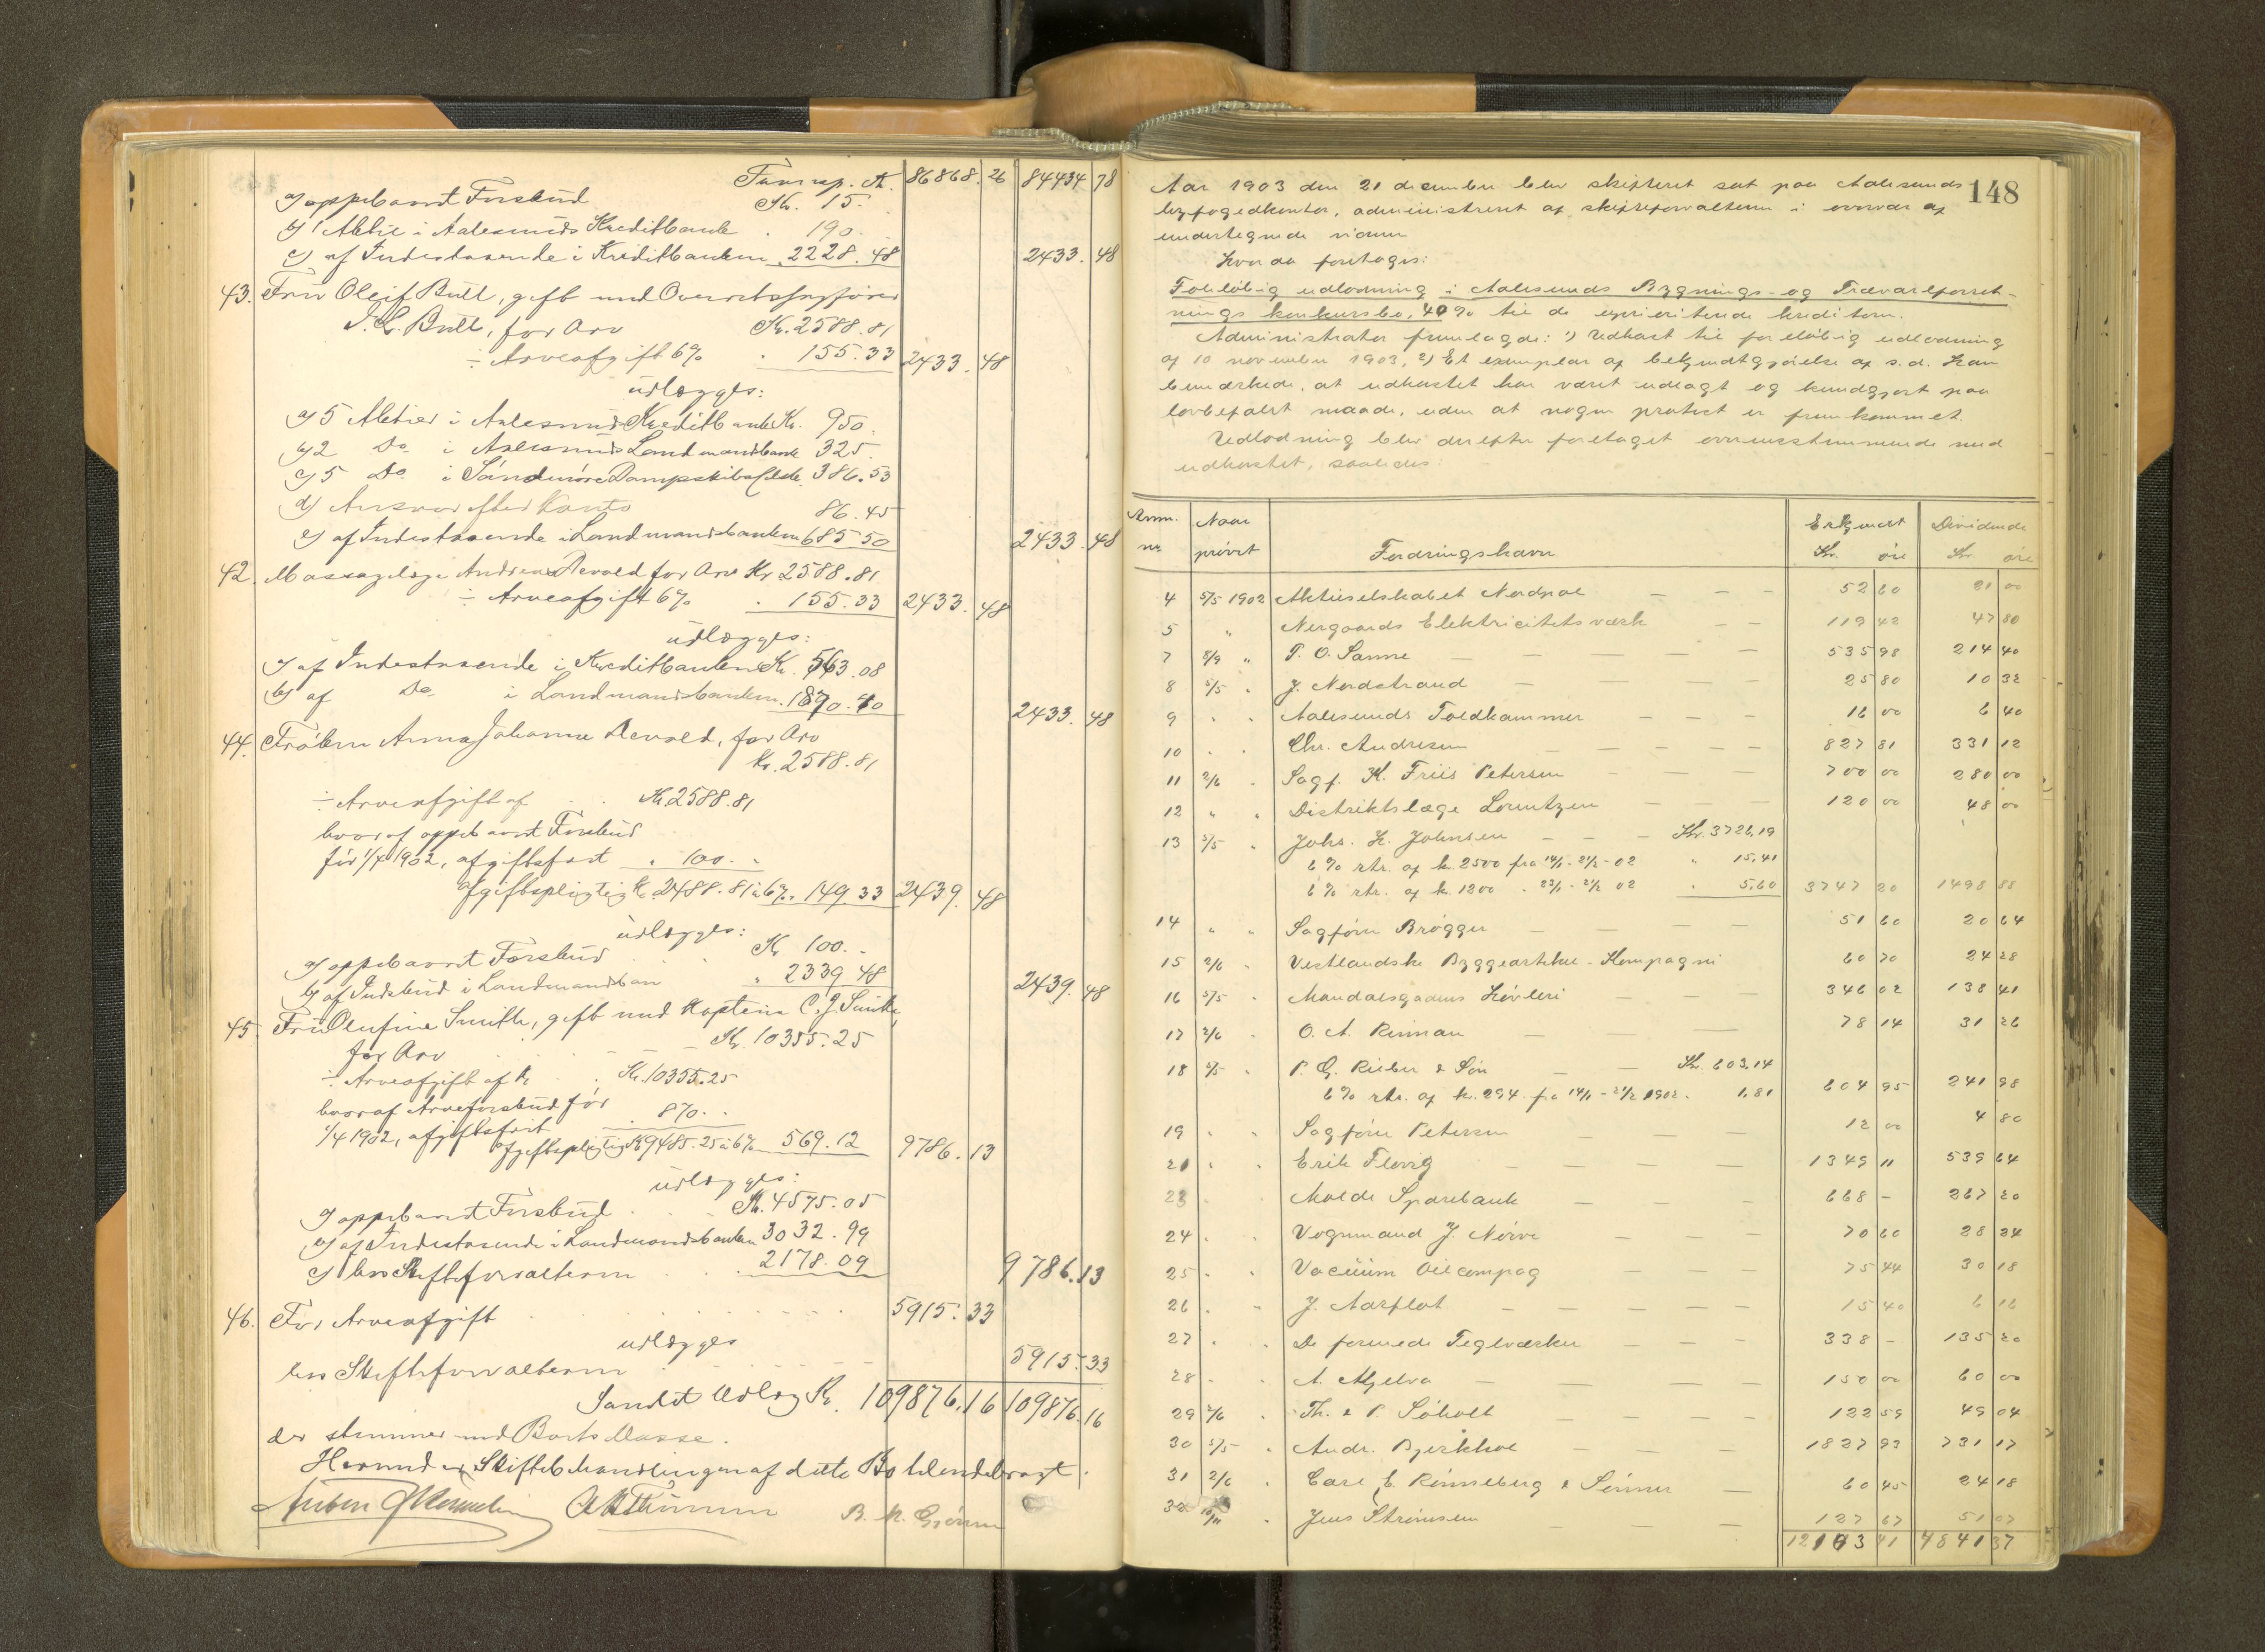 Transp. Kr. 86868.26 84434.78
a) oppebaaret Forskud Kr. 15.
b) 1 Aktie i Aalesunds Kreditbank . 190.
c) af Indestaaende i Kreditbanken 2228.48 2433.48
43. Fru Oleif Bull, gift med Overretssagfører
J. L. Bull, for Arv Kr. 2588.81
÷ Arveafgift 6% . 155.33 2433.48
udlægges:
a) 5 Aktier i Aalesunds Kreditbank Kr. 950.
b) 2 Do i Aalesunds Landmandsbank 325.
c) 5 Do i Søndmøre Dampskibsselsk. 386.53
d) Ansvar efter Konto 86.45
e) af Indestaaende i Landmandsbanken 685.50 2433.48
42. Massagelæge Andreas Devold for Arv Kr 2588.81
÷ Arveafgift 6% . 155.33 2433.48
udlægges:
a) af Indestaaende i Kreditbanken Kr. 563.08
b) af Do i Landmandsbanken 1870.40 2433.48
44. Frøken Anna Johanne Devold, for Arv
Kr. 2588.81
÷ Arveafgift af Kr. 2588.81
hvoraf oppebaaret Forskud
før 1/4 1902, afgiftsfrit . 100. -
afgiftspligtig Kr. 2488.81 à 6% . 149.33 2439.48
udlægges:
a) oppebaaret Forskud Kr 100. -
b) af Indskud i Landmandsban " 2339.48 2439.48
45. Fru Olufine Smith, gift med Kaptein C. J. Smith,
for Arv Kr. 10355.25
÷ Arveafgift af Kr. 10355.25
hvoraf Arveforskud før
1/4 1902, afgiftsfrit . 870. -
afgiftspligtig Kr 9485.25 à 6% 569.12 9786.13
udlægges:
a) oppebaaret Forskud Kr. 4575.05
b) af Indestaaende i Landmandsbanken 3032.99
c) hos Skifteforvalteren 2178.09 9786.13
46. For Arveafgift 5915.33
udlægges
hos Skifteforvalteren 5915.33
Samlet Udlæg Kr. 109876.16 109876.16
der stemmer med Boets Masse.
Hermed er Skiftebehandlingen af dette Bo tilendebragt.
B. K. Grønn
148
Aar 1903 den 21 december blev skifteret sat paa Aalesunds
byfogedkontor, administreret af skifteforvalteren i overvær af
undertegnede vidner
Hvorda foretoges:
Foreløbig udlodning i Aalesunds Bygnings- og Trævareforret-
nings konkursbo, 40% til de uprioriterede kreditorer.
Administrator fremlagde: 1) Udkast til foreløbig udlodning
af 10 november 1903, 2) Et exemplar af bekjendtgjørelse af s. d. Han
bemærkede, at udkastet har været udlagt og kundgjort paa
lovbefalet maade, uden at nogen protest er fremkommet.
Udlodning blev derefter foretaget overensstemmende med
udkastet, saaledes:
Anm. nr Naar prøvet Fordringshaver Erkjendt Kr. øre Dividende Kr. øre
4 5/5 1902 Aktieselskabet Nordpol — — — 52 60 21 00
5 " Nergaards Elektricitetsværk — — 119 42 47 80
7 8/9 " P. O. Sanne — — — — — 535 98 214 40
8 5/5 " J. Nordstrand — — — — 25 80 10 32
9 " " Aalesunds Toldkammer — — — 16 00 6 40
10 " " Chr. Andresen — — — — 827 81 331 12
11 2/6 " Sagf. K. Friis Petersen — — — 700 00 280 00
12 " " Distriktslæge Lorentzen — — — 120 00 48 00
13 5/5 " Johs. H. Johnsen — — — Kr. 3726,19
6% rtr. af kr. 2500 fra 14/1 - 21/2 - 02 " 15,41
6% rtr. af kr. 1200 - 23/1 - 21/2 02 " 5,60 3747 20 1498 88
14 " " Sagfører Brøgger — — — — 51 60 20 64
15 2/6 " Vestlandske Byggeartikel-Kompagni 60 70 24 28
16 5/5 " Mandalsgadens Høvleri — — — 346 02 138 41
17 2/6 " O. A. Rinman — — 78 14 31 26
18 5/5 " P. G. Rieber & Søn — — Kr. 603,14
6% rtr. af kr. 294 fra 14/1 - 21/2 1902 . 1,81 604 95 241 98
19 " " Sagfører Petersen — — — 12 00 4 80
21 " " Erik Flovig — — — — 1349 11 539 64
23 " Molde Sparebank — — — — 668 - 267 20
24 " " Vognmand J. Nørve — — — 70 60 28 24
25 " " Vacuum Oilcompag — — — 75 44 30 18
26 " " J. Aarflot — — — — — 15 40 6 16
27 " " De forenede Teglværker — — — 338 - 135 20
28 " " A. Mjelva — — — — — 150 00 60 00
29 2/6 " Th. & P. Søholt — — — — 122 59 49 04
30 5/5 " Andr. Bjerkhol — — — — 1827 93 731 17
31 2/6 " Carl E. Rønneberg & Sønner — 60 45 24 18
32 10/11 " Jens Strømsen — — — — 127 67 51 07
12193 41 4841 37